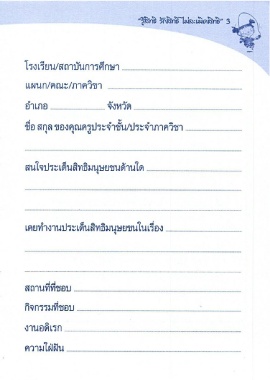 "รู้สิทธิ รักสิทธิ ไม่ละเมิดสิทธิ" 3
โรงเรียน/สถาบันการศึกษา
แผนก/คณะ/ภาควิชา
อำเภอ จังหวัด
ชื่อ สกุล ของคุณครูประจำชั้น/ประจำภาควิชา
สนใจประเด็นสิทธิมนุษยชนด้านใด
เคยทำงานประเด็นสิทธิมนุษยชนในเรื่อง
สถานที่ที่ชอบ
กิจกรรมที่ชอบ
งานอดิเรก
ความใฝ่ฝัน